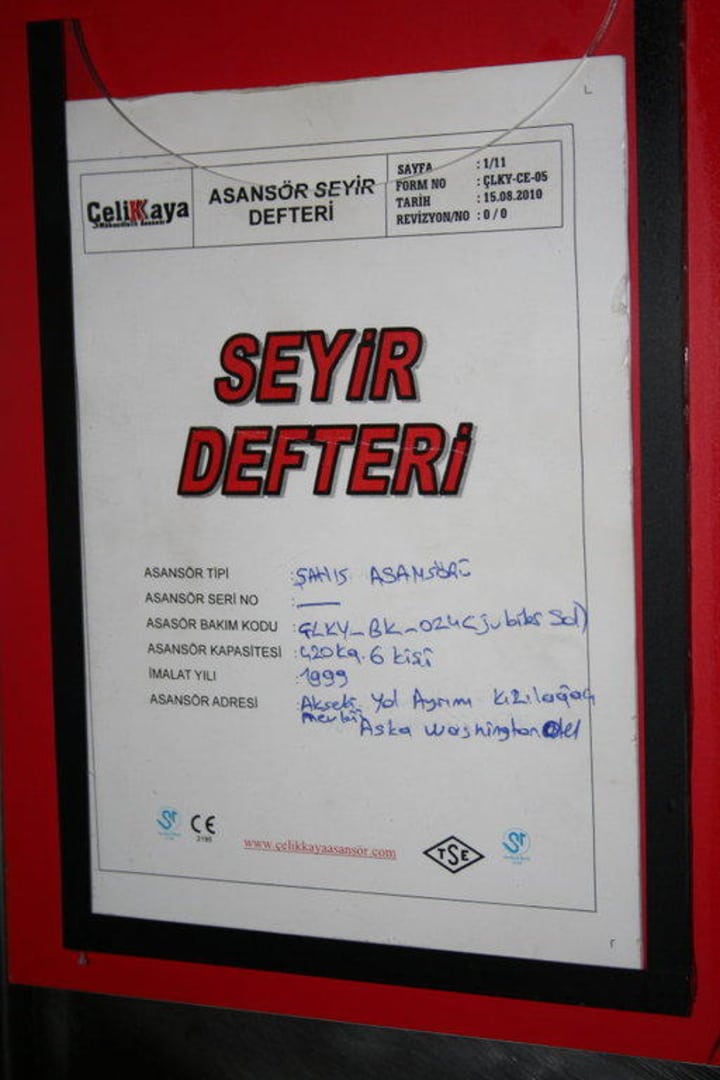 ÇeliKKaya
Mühendislik Asansör
ASANSÖR SEYİR
DEFTERİ
SAYFA : 1/11
FORM NO : ÇLKY-CE-05
TARİH : 15.08.2010
REVİZYON/NO : 0 / 0
SEYİR
DEFTERİ
ASANSÖR TİPİ : ŞAHIS ASANSÖRÜ
ASANSÖR SERİ NO : —
ASASÖR BAKIM KODU : ÇLKY-BK-024 (jubiler Sol)
ASANSÖR KAPASİTESİ : 420 kg. 6 kişi
İMALAT YILI : 1999
ASANSÖR ADRESİ : Akseki Yol Ayrımı Kızılağaç
mevkii Aska washington Otel
CE
2195
www.çelikkayaasansör.com
TSE